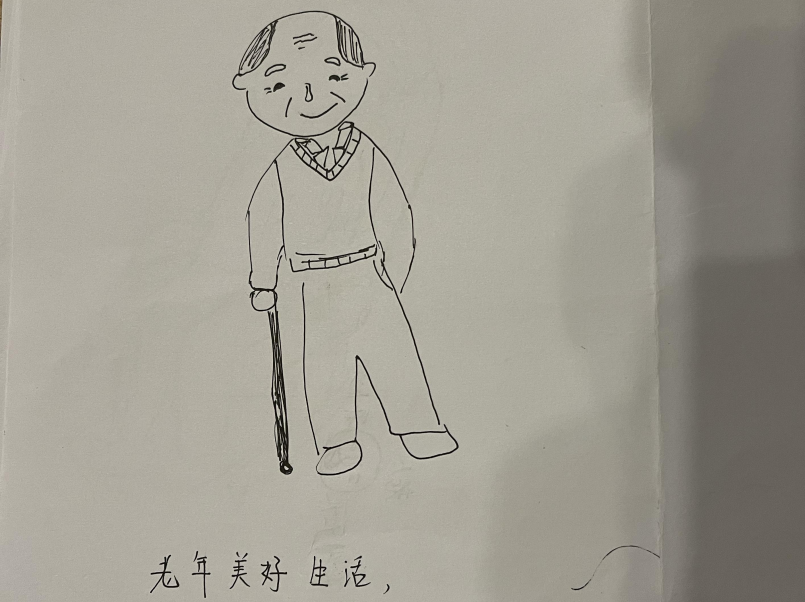 老年美好生活，